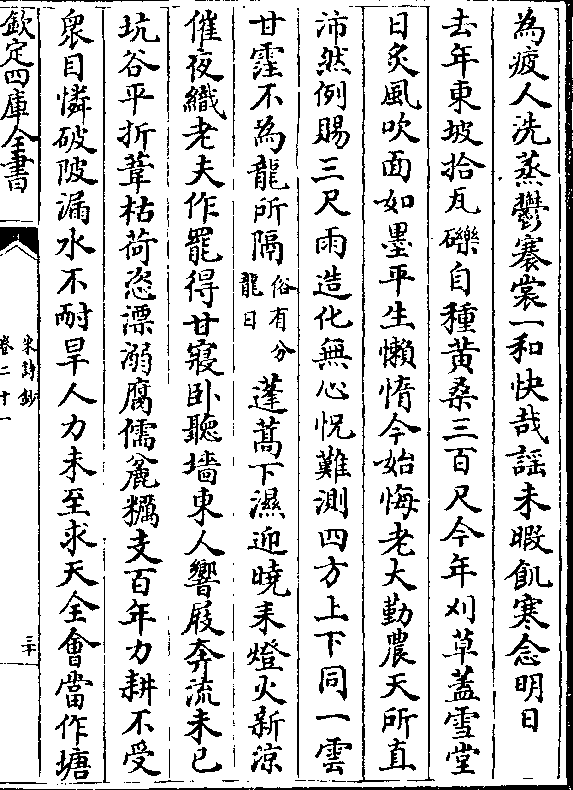 為疲人洗蒸鬱褰裳一和快哉謡未暇飢寒念明日
去年東坡拾瓦礫自種黄桑三百尺今年刈草蓋雪堂
日炙風吹面如墨平生懶惰今始悔老大勤農天所直
沛然例賜三尺雨造化無心怳難測四方上下同一雲
甘霔不為龍所隔俗有分龍日蓬蒿下濕迎曉耒燈火新涼
催夜織老夫作罷得甘寢卧聽墻東人響屐奔流未已
坑谷平折葦枯荷恣漂溺腐儒麄糲支百年力耕不受
衆目憐破陂漏水不耐旱人力未至求天全會當作塘
欽定四庫全書
宋詩鈔
卷二十一
三十